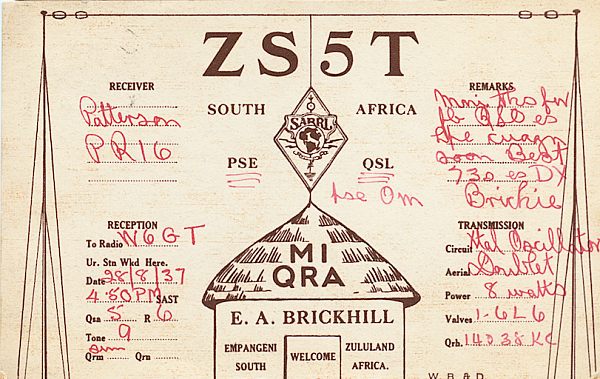 ZS5T
RECEIVER
Patterson
PR16
SOUTH AFRICA
SARRL
PSE QSL
pse Om
REMARKS
Mni Tks for
fb QSO es
hpe cuagn
soon Best
73s es DX
Brickie
RECEPTION
To Radio W6GT
Ur. Stn Wkd Here.
Date 28/8/37
4.50PM SAST
Qsa 5 R 6
Tone 9
Qrm Qrn
MI
QRA
E. A. BRICKHILL
EMPANGENI
SOUTH
WELCOME
ZULULAND
AFRICA.
TRANSMISSION
Circuit Xtal Oscillator
Aerial Doublet
Power 8 watts
Valves 1-6L6
Qrh. 14038 KC
W.B&D.